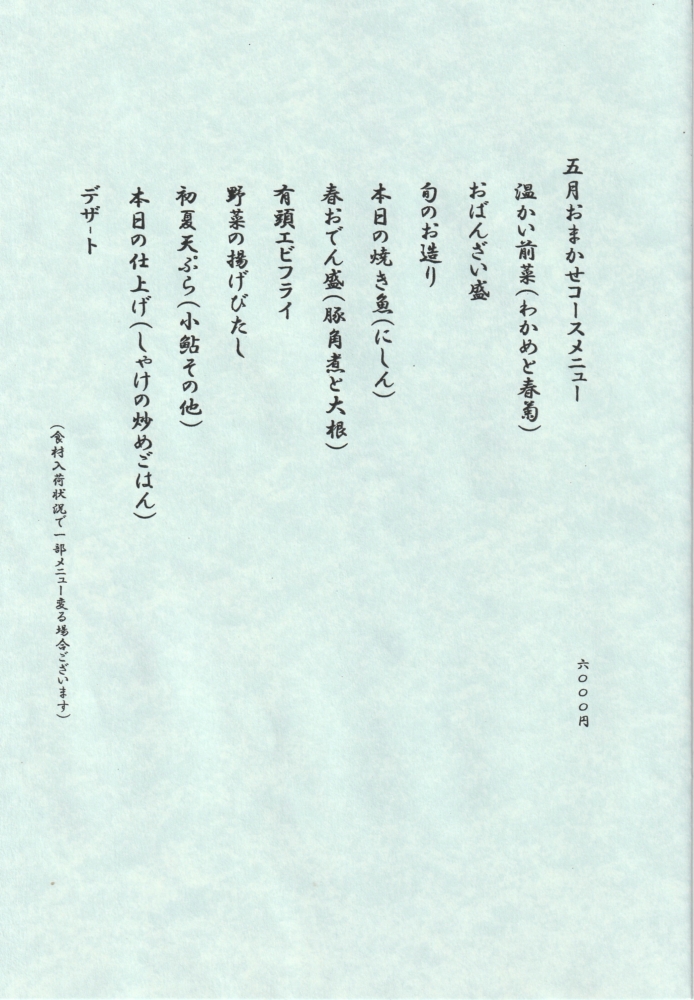 五月おまかせコースメニュー
六〇〇〇円
温かい前菜(わかめと春菊)
おばんざい盛
旬のお造り
本日の焼き魚(にしん)
春おでん盛(豚角煮と大根)
有頭エビフライ
野菜の揚げびたし
初夏天ぷら(小鮎その他)
本日の仕上げ(しゃけの炒めごはん)
デザート
(食材入荷状況で一部メニュー変る場合ございます)